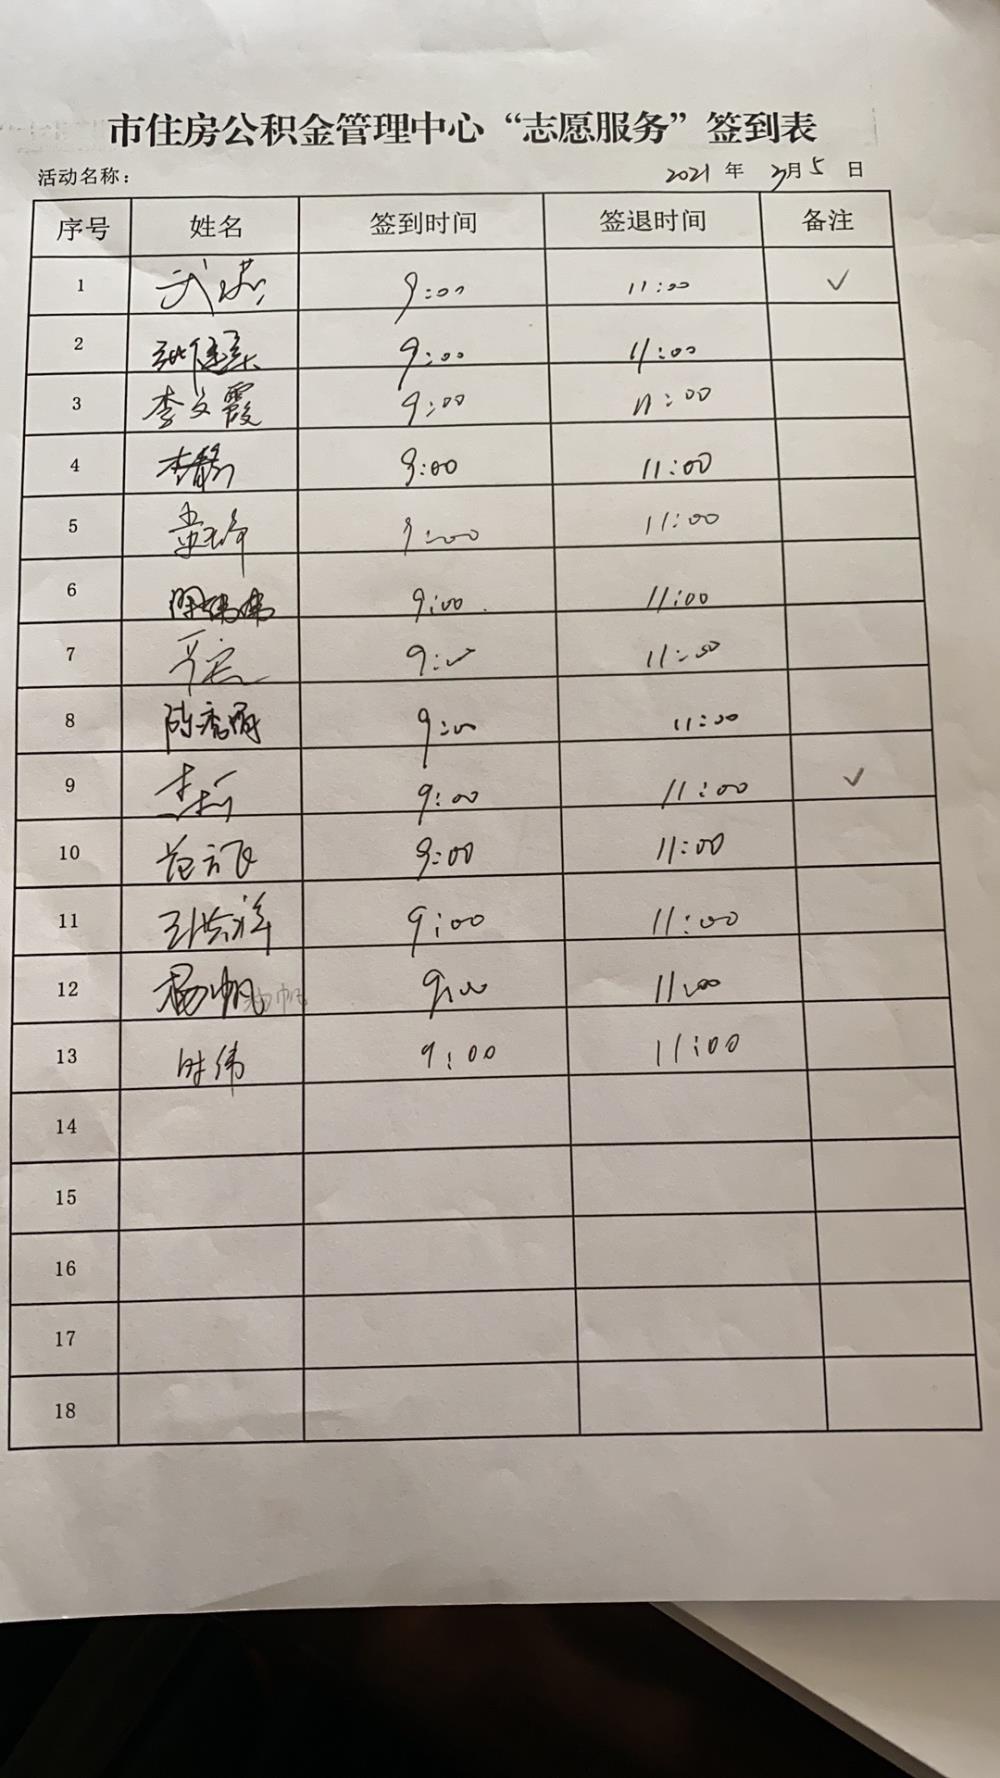 市住房公积金管理中心“志愿服务”签到表
活动名称： 2021 年 3月 5 日
序号 姓名 签到时间 签退时间 备注
1 9:00 11:00 ✓
2 9:00 11:00
3 李文霞 9:00 11:00
4 9:00 11:00
5 9:00 11:00
6 9:00 11:00
7 9:00 11:00
8 9:00 11:00
9 9:00 11:00 ✓
10 范云飞 9:00 11:00
11 9:00 11:00
12 杨帆 杨帆 9:00 11:00
13 时伟 9:00 11:00
14
15
16
17
18